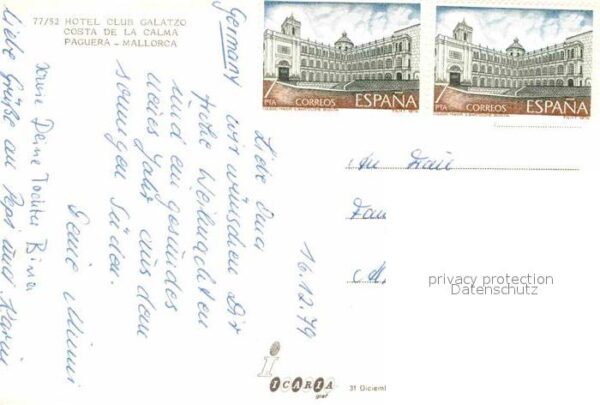 77/52 HOTEL CLUB GALATZO
COSTA DE LA CALMA
PAGUERA - MALLORCA
Germany
16.12.79
Liebe Oma
wir wünschen Dir
Frohe Weihnachten
und ein gesundes
neues Jahr aus dem
sonnigen Süden.
Deine Mimi
Deine Tochter
Liebe Grüße an Papi und Karin
7 PTA CORREOS ESPAÑA
7 PTA CORREOS ESPAÑA
privacy protection
Datenschutz
i
ICARIA
graf
31 Diciemb